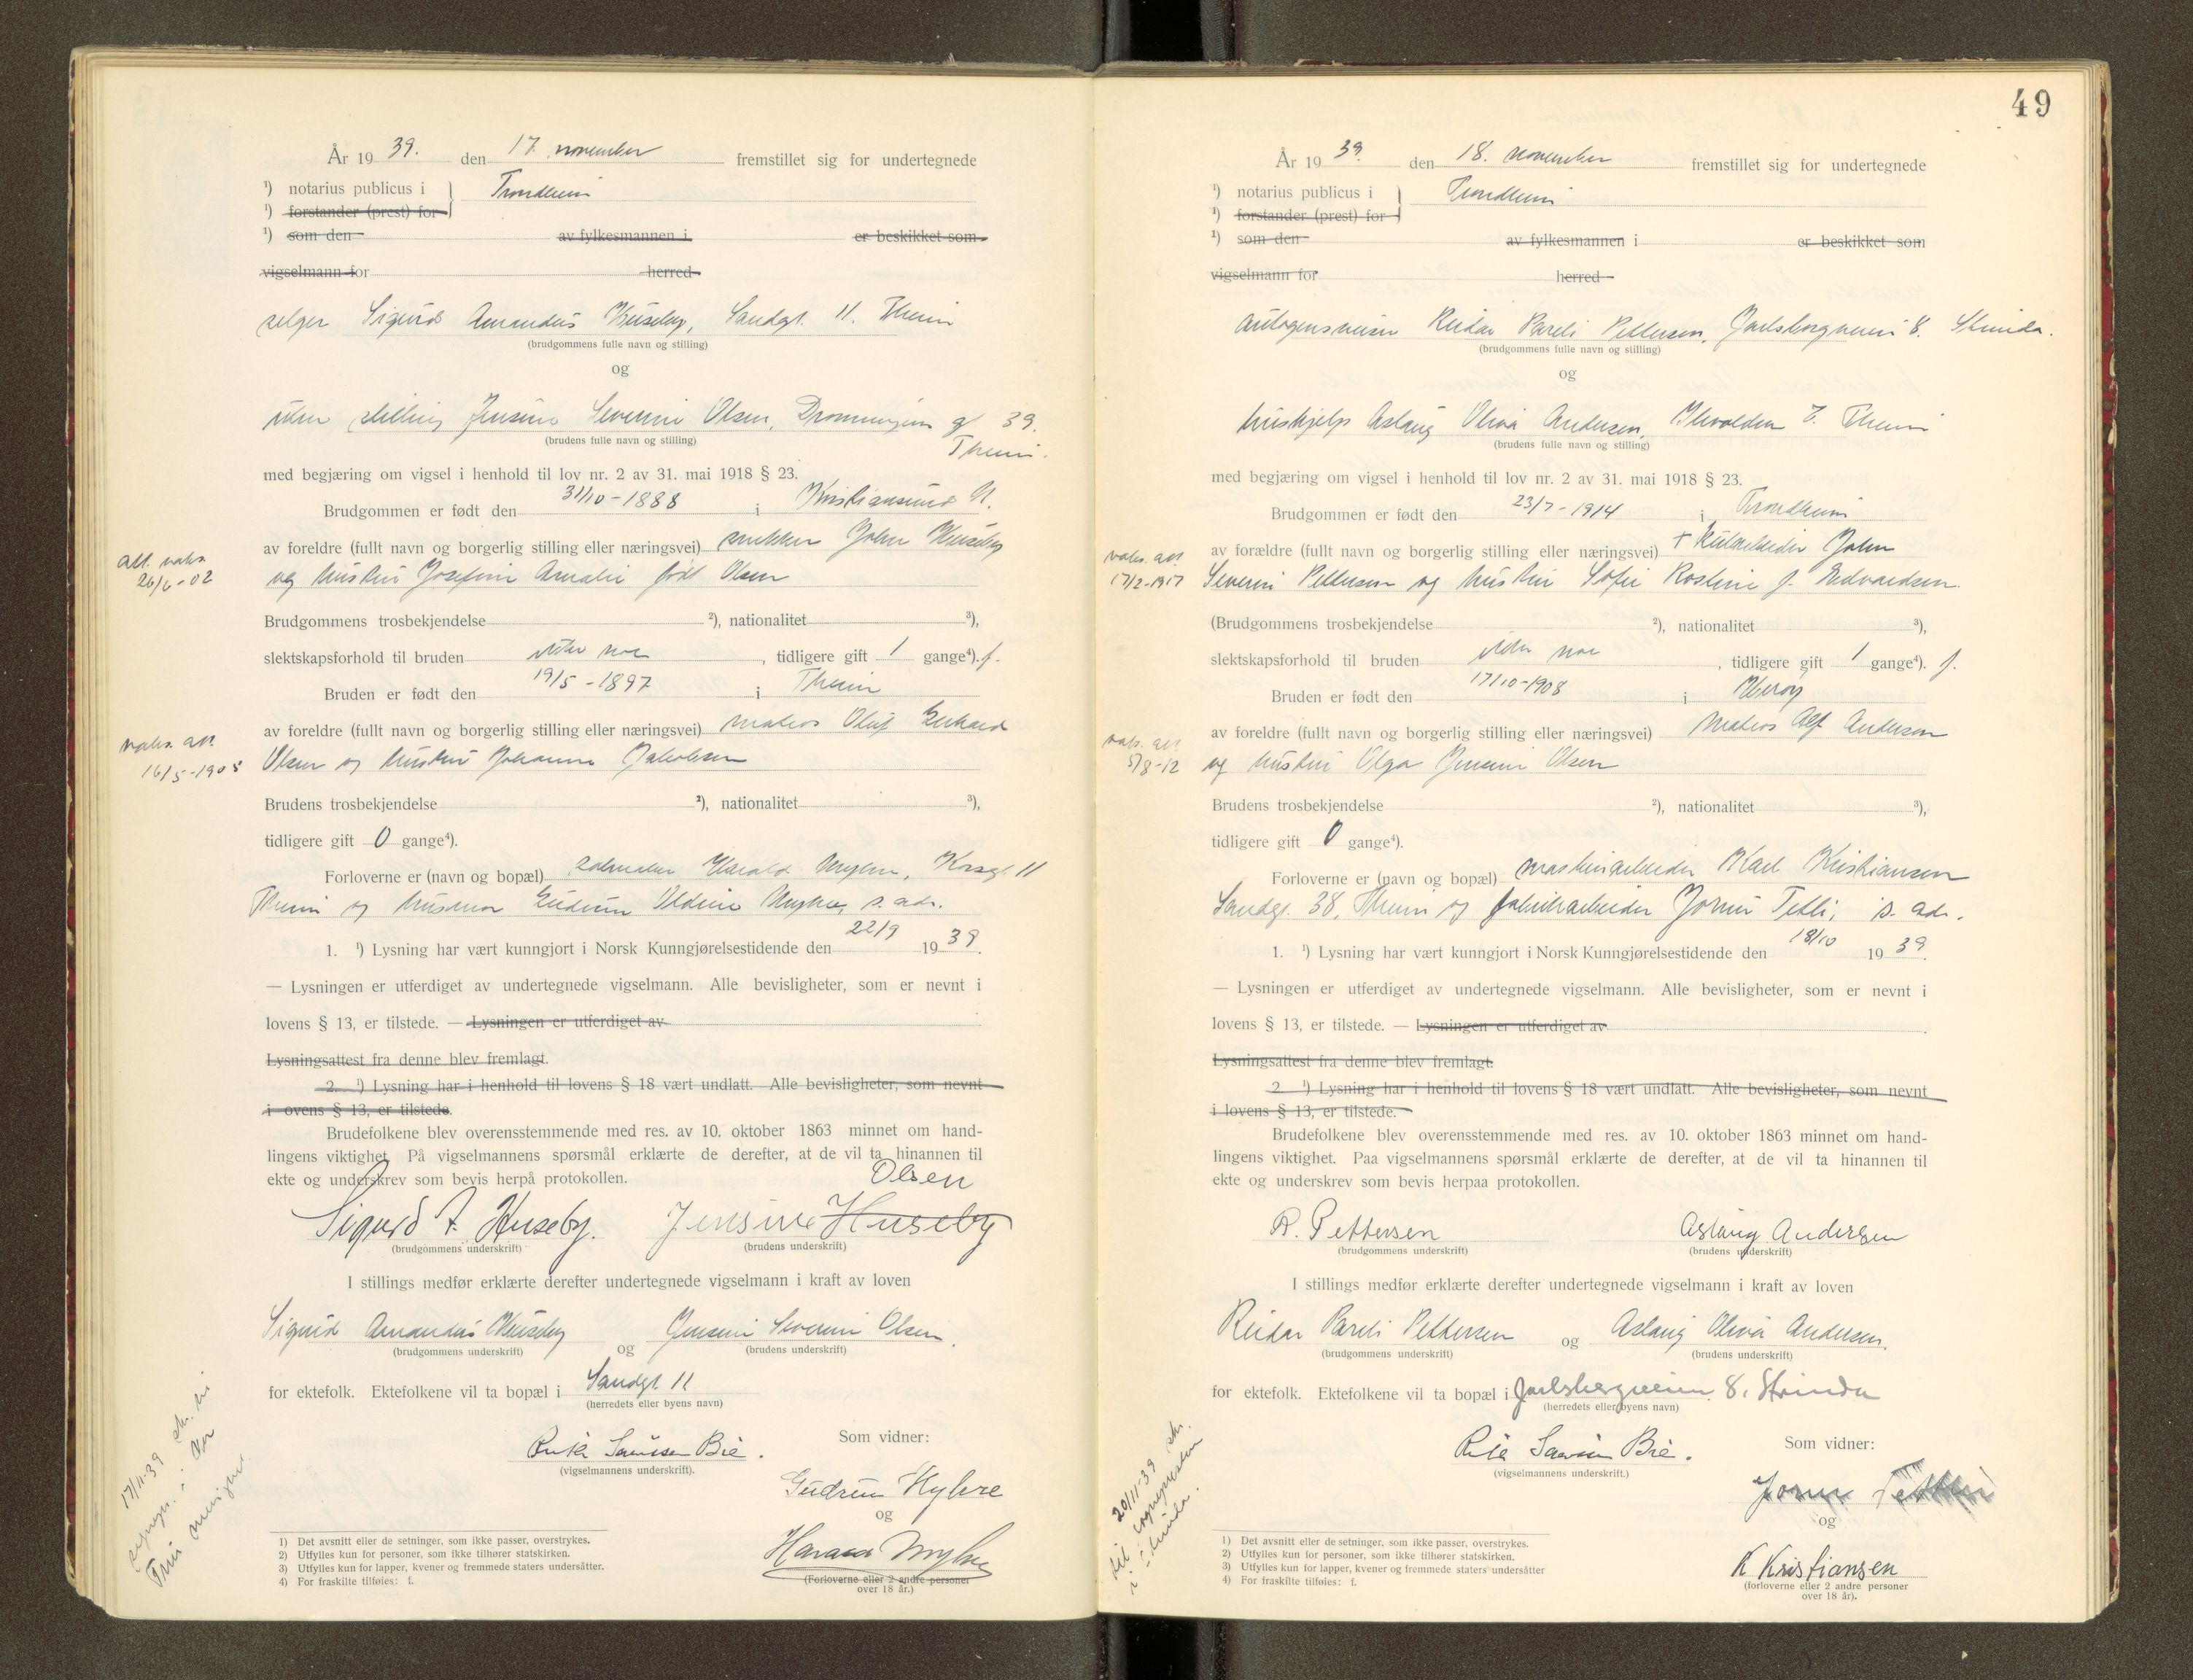 År 19 39. den 17. november fremstillet sig for undertegnede
¹) notarius publicus i Trondheim
¹) forstander (prest) for
¹) som den av fylkesmannen i er beskikket som
vigselmann for herred
selger Sigurd Amandus Huseby, Sandgt. 11. Theim
(brudgommens fulle navn og stilling)
og
uten stilling Jensine Severine Olsen, Dronningens gt 39.
(brudens fulle navn og stilling)
Theim.
med begjæring om vigsel i henhold til lov nr. 2 av 31. mai 1918 § 23.
Brudgommen er født den 31/10-1888 i Kristiansund N.
av foreldre (fullt navn og borgerlig stilling eller næringsvei) snekker John Huseby
att. vaks.
26/6-02
og hustru Josefine Amalie født Olsen
Brudgommens trosbekjendelse ²), nationalitet ³),
slektskapsforhold til bruden uten noe, tidligere gift 1 gange⁴). f.
Bruden er født den 19/5-1897 i Theim
av foreldre (fullt navn og borgerlig stilling eller næringsvei) matros Oluf Gerhard
vaks. att.
16/5-1905
Olsen og hustru Johanna Jakobsen
Brudens trosbekjendelse ²), nationalitet ³),
tidligere gift 0 gange⁴).
Forloverne er (navn og bopæl) Harald Myhre, Korsgt. 11
Theim og hustru Gudrun Myhre, s. adr.
1. ¹) Lysning har vært kunngjort i Norsk Kunngjørelsestidende den 22/9 19 39.
— Lysningen er utferdiget av undertegnede vigselmann. Alle bevisligheter, som er nevnt i
lovens § 13, er tilstede. — Lysningen er utferdiget av
Lysningsattest fra denne blev fremlagt.
2. ¹) Lysning har i henhold til lovens § 18 vært undlatt. Alle bevisligheter, som nevnt
i ovens § 13, er tilstede.
Brudefolkene blev overensstemmende med res. av 10. oktober 1863 minnet om hand-
lingens viktighet. På vigselmannens spørsmål erklærte de derefter, at de vil ta hinannen til
ekte og underskrev som bevis herpå protokollen.
Olsen
Sigurd A. Huseby. Jensine Huseby
(brudgommens underskrift) (brudens underskrift)
I stillings medfør erklærte derefter undertegnede vigselmann i kraft av loven
Sigurd Amandus Huseby og Jensine Severine Olsen.
(brudgommens underskrift) (brudens underskrift)
for ektefolk. Ektefolkene vil ta bopæl i Sandgt. 11
(herredets eller byens navn)
Som vidner:
Bie.
(vigselmannens underskrift).
Gudrun Myhre
og
Harald Myhre
(Forloverne eller 2 andre personer
over 18 år.)
17/11-39 skr. til
sognepr. i Vor
Frue menighet
1) Det avsnitt eller de setninger, som ikke passer, overstrykes.
2) Utfylles kun for personer, som ikke tilhører statskirken.
3) Utfylles kun for lapper, kvener og fremmede staters undersåtter.
4) For fraskilte tilføies: f.
49
År 19 39. den 18. november fremstillet sig for undertegnede
¹) notarius publicus i Trondheim
¹) forstander (prest) for
¹) som den av fylkesmannen i er beskikket som
vigselmann for herred
Reidar Pareli Pettersen, Jarlsbergveien 8. Strinda.
(brudgommens fulle navn og stilling)
og
hushjelp Aslaug Olivia Andersen, Ilevolden 7. Theim
(brudens fulle navn og stilling)
med begjæring om vigsel i henhold til lov nr. 2 av 31. mai 1918 § 23.
Brudgommen er født den 23/7-1914 i Trondheim
av forældre (fullt navn og borgerlig stilling eller næringsvei) + John
vaks. att.
17/2-1917
Severin Pettersen og hustru Sofie f. Edvardsen.
(Brudgommens trosbekjendelse ²), nationalitet ³),
slektskapsforhold til bruden uten noe, tidligere gift 1 gange⁴). f.
Bruden er født den 17/10-1908 i Inderøy
av foreldre (fullt navn og borgerlig stilling eller næringsvei) matros Alf Andersen
vaks. att.
5/8-12
og hustru Olga Jensine Olsen
Brudens trosbekjendelse ²), nationalitet ³),
tidligere gift 0 gange⁴).
Forloverne er (navn og bopæl) maskinarbeider Karl Kristiansen
Sandgt. 38, Theim og fabrikarbeider s. adr.
1. ¹) Lysning har vært kunngjort i Norsk Kunngjørelsestidende den 18/10 19 39.
— Lysningen er utferdiget av undertegnede vigselmann. Alle bevisligheter, som er nevnt i
lovens § 13, er tilstede. — Lysningen er utferdiget av
Lysningsattest fra denne blev fremlagt.
2 ¹) Lysning har i henhold til lovens § 18 vært undlatt. Alle bevisligheter, som nevnt
i lovens § 13, er tilstede.
Brudefolkene blev overensstemmende med res. av 10. oktober 1863 minnet om hand-
lingens viktighet. Paa vigselmannens spørsmål erklærte de derefter, at de vil ta hinannen til
ekte og underskrev som bevis herpaa protokollen.
R. Pettersen Aslaug Andersen
(brudgommens underskrift) (brudens underskrift)
I stillings medfør erklærte derefter undertegnede vigselmann i kraft av loven
Reidar Pareli Pettersen og Aslaug Olivia Andersen.
(brudgommens underskrift) (brudens underskrift)
for ektefolk. Ektefolkene vil ta bopæl i Jarlsbergveien 8, Strinda
(herredets eller byens navn)
Som vidner:
Bie.
(vigselmannens underskrift.)
og
K Kristiansen
(forloverne eller 2 andre personer
over 18 år).
20/11-39 skr.
til sognepresten
i Strinda.
1) Det avsnitt eller de setninger, som ikke passer, overstrykes.
2) Utfylles kun for personer, som ikke tilhører statskirken.
3) Utfylles kun for lapper, kvener og fremmede staters undersåtter
4) For fraskilte tilføies: f.